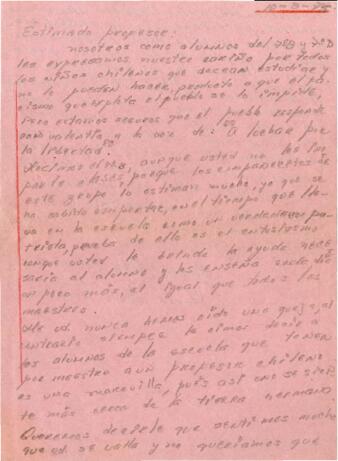 Estimado profesor:
nosotros como alumnos del 7ºB y 7ºD
les expresamos nuestro cariño por todos
los niños chilenos que desean estudiar y
no lo pueden hacer, producto a que el fa-
cismo que explota el pueblo se lo impide,
pero estamos seguros que el pueblo responde
con valentía, a la voz de: A luchar por
la libertad!
aunque usted no les im-
parte clases, porque los compañeros de
este grupo lo estiman mucho, ya que se
ha sabido comportar, en el tiempo que lle-
va en la escuela como un verdadero pa-
triota, prueba de ello es el entusiasmo
conque usted le brinda la ayuda nece-
saria al alumno y les enseña cada día
un poco más, al igual que todos los
maestros.
De ud. nunca hemos oído una queja, al
contrario siempre le oimos decir a
los alumnos de la escuela que tener
por maestro a un profesor chileno
es una maravilla, pués así uno se sien-
te más cerca de la tierra hermana.
Queremos decirle que sentimos mucho
que ud. se valla y no queríamos que